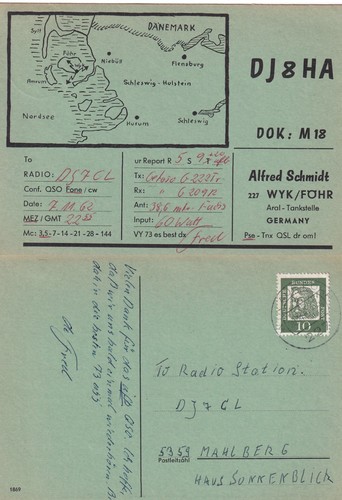 DÄNEMARK
Sylt
Föhr
Niebüll
Flensburg
Amrum
Schleswig-Holstein
Nordsee
Husum
Schleswig
DJ8HA
DOK: M18
To
RADIO: DJ7GL
Conf. QSO Fone / cw
Date: 7.11.62
MEZ / GMT 22
Mc: 3,5-7-14-21-28-144
ur Report R 5 S 9
Tx: Geloso G222Tr
Rx: " G209R
Ant: 38,6 mtr. Fuchs
Input: 60 Watt
VY 73 es best dx
Fred
Alfred Schmidt
227 WYK/FÖHR
Aral-Tankstelle
GERMANY
Pse - Tnx QSL dr om!
Vielen Dank für das QSO. Ich hoffe,
daß wir uns bald einmal wiederhören. Bis
dahin die besten 73
Fred
DEUTSCHE
BUNDESPOST
10
To Radio Station
DJ7GL
5359 MAHLBERG
Postleitzahl
HAUS SONNENBLICK
1869